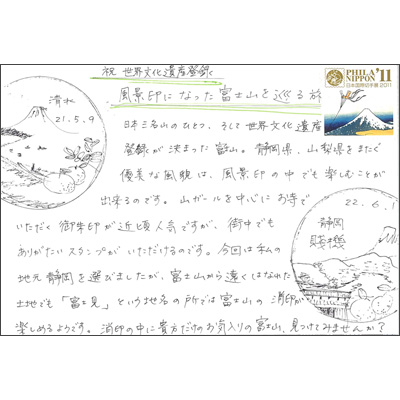 祝 世界文化遺産登録
風景印になった富士山を巡る旅
PHILA NIPPON '11
日本国際切手展 2011
清水
21.5.9
日本三名山のひとつ、そして世界文化遺産
登録が決まった富士山。静岡県、山梨県をまたぐ
優美な風貌は、風景印の中でも楽しむことが
出来るのです。山ガールを中心にお寺で
いただく御朱印が近頃人気ですが、街中でも
ありがたいスタンプがいただけるのです。今回は私の
地元静岡を選びましたが、富士山から遠くはなれた
土地でも「富士見」という地名の所では富士山の消印が
楽しめるようです。消印の中に貴方だけのお気入りの富士山、見つけてみませんか？
静岡
賤機
22.6.1